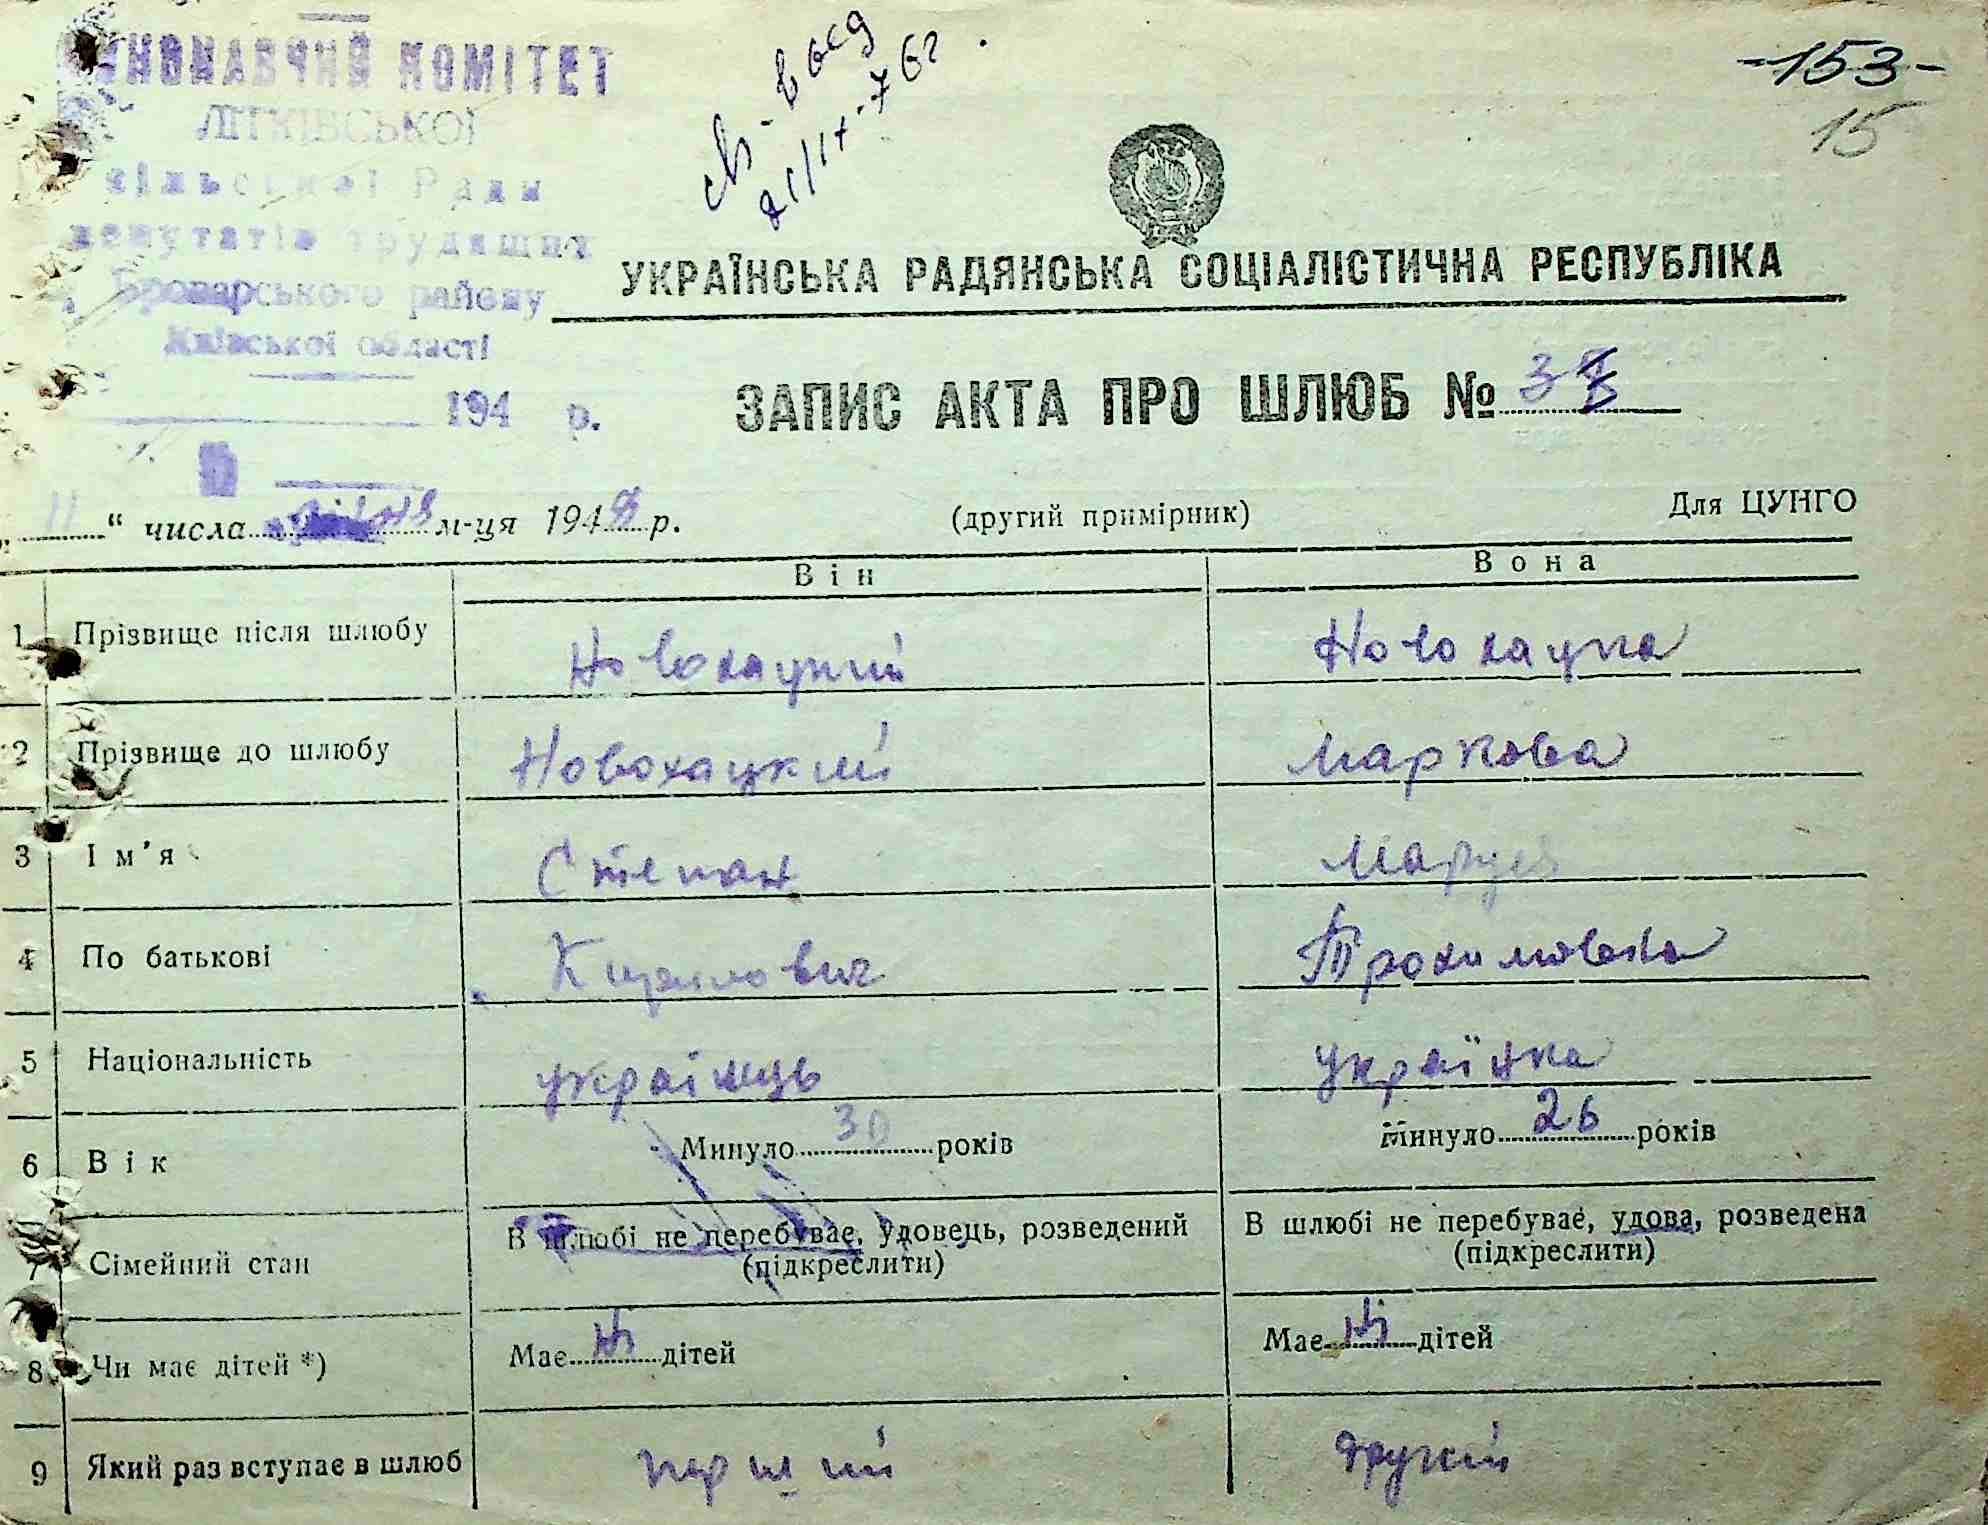 -153-
15
ВИКОНАВЧИЙ КОМІТЕТ
ЛІТКІВСЬКОЇ
сільської Ради
депутатів трудящих
Броварського району
Київської області
194 р.
УКРАЇНСЬКА РАДЯНСЬКА СОЦІАЛІСТИЧНА РЕСПУБЛІКА
ЗАПИС АКТА ПРО ШЛЮБ № 3
„ 11 “ числа м-ця 1948 р. (другий примірник) Для ЦУНГО
Він Вона
1 Прізвище після шлюбу Новохацкий Новохацка
2 Прізвище до шлюбу Новохацкий Маркова
3 Ім'я Степан Маруся
4 По батькові Кирилович Трохимовна
5 Національність українець українка
6 Вік Минуло 30 років Минуло 26 років
7 Сімейний стан В шлюбі не перебуває, удовець, розведений (підкреслити) В шлюбі не перебуває, удова, розведена (підкреслити)
8 Чи має дітей *) Має ні дітей Має ні дітей
9 Який раз вступає в шлюб перший другий